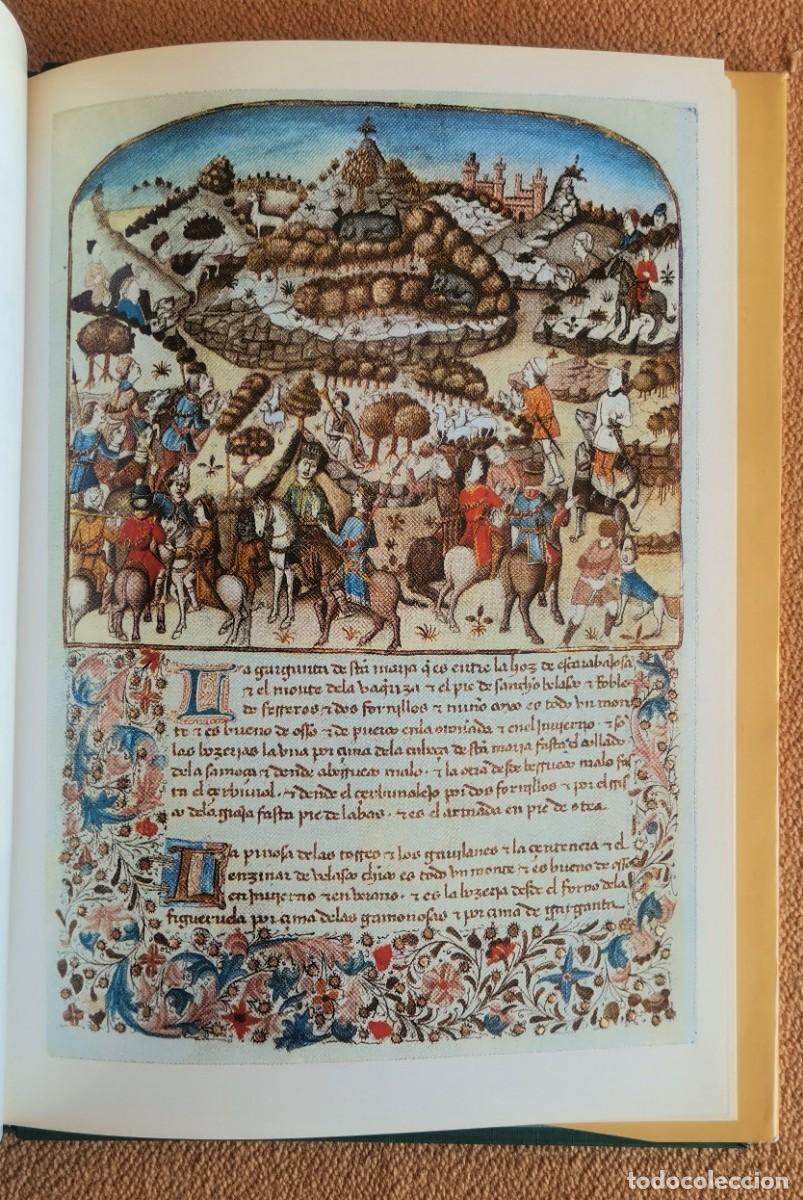 La garganta de stā maria q̄ es entre la hoz de escarabajosa
τ el monte dela vaqriza τ el pie de sancho velasco τ Roble
do τ dos fornillos τ nuño es todo vn mon
te τ es bueno de osso τ de puerco enla otoñada τ enel jnuierno · τ sō
las bozerias la vna por çima dela cabeça de stā maria fasta el collado
dela samoça τ dende malo · τ la otra desde malo fas
ta el τ dende el por dos fornillos τ por el
dela fasta pie de · τ es el armada en pie de
la pinosa delas torres τ los gauilanes τ la çentençia τ el
enzinar de velasco chico es todo vn monte τ es bueno de osso
en jnuierno τ en verano · τ es la bozeria desde el forno dela
figueruela por çima delas gamonosas τ por çima de garganta
todocoleccion